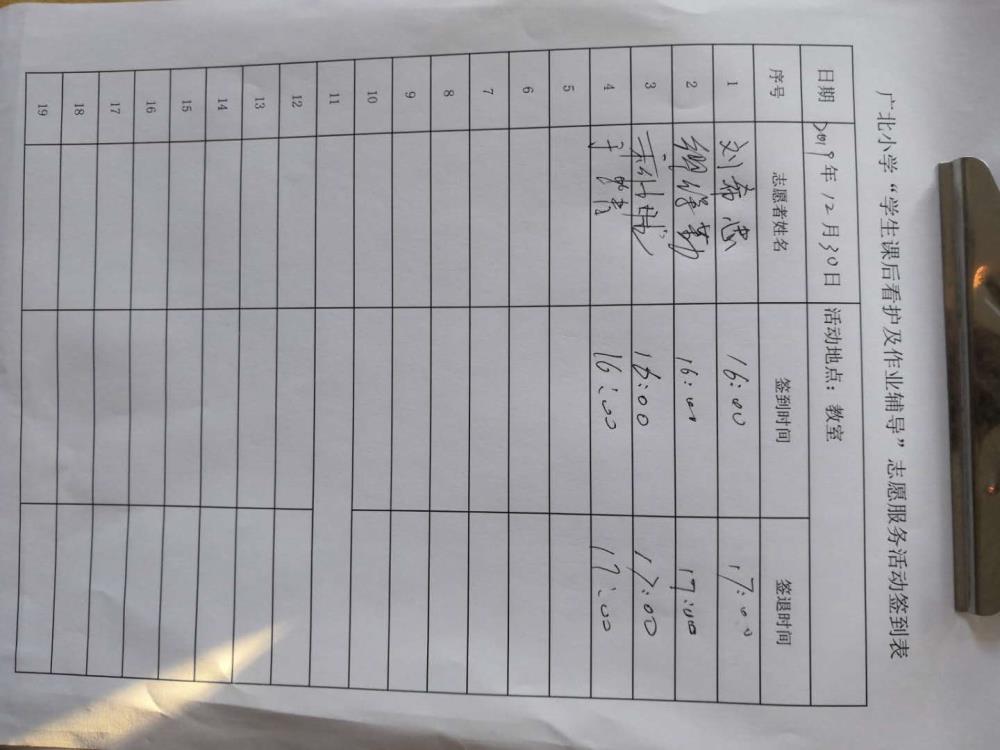 广北小学“学生课后看护及作业辅导”志愿服务活动签到表
日期 2019年12月30日 活动地点：教室
序号 志愿者姓名 签到时间 签退时间
1 刘希忠 16:00 17:00
2 16:00 17:00
3 16:00 17:00
4 16:00 17:00
5
6
7
8
9
10
11
12
13
14
15
16
17
18
19